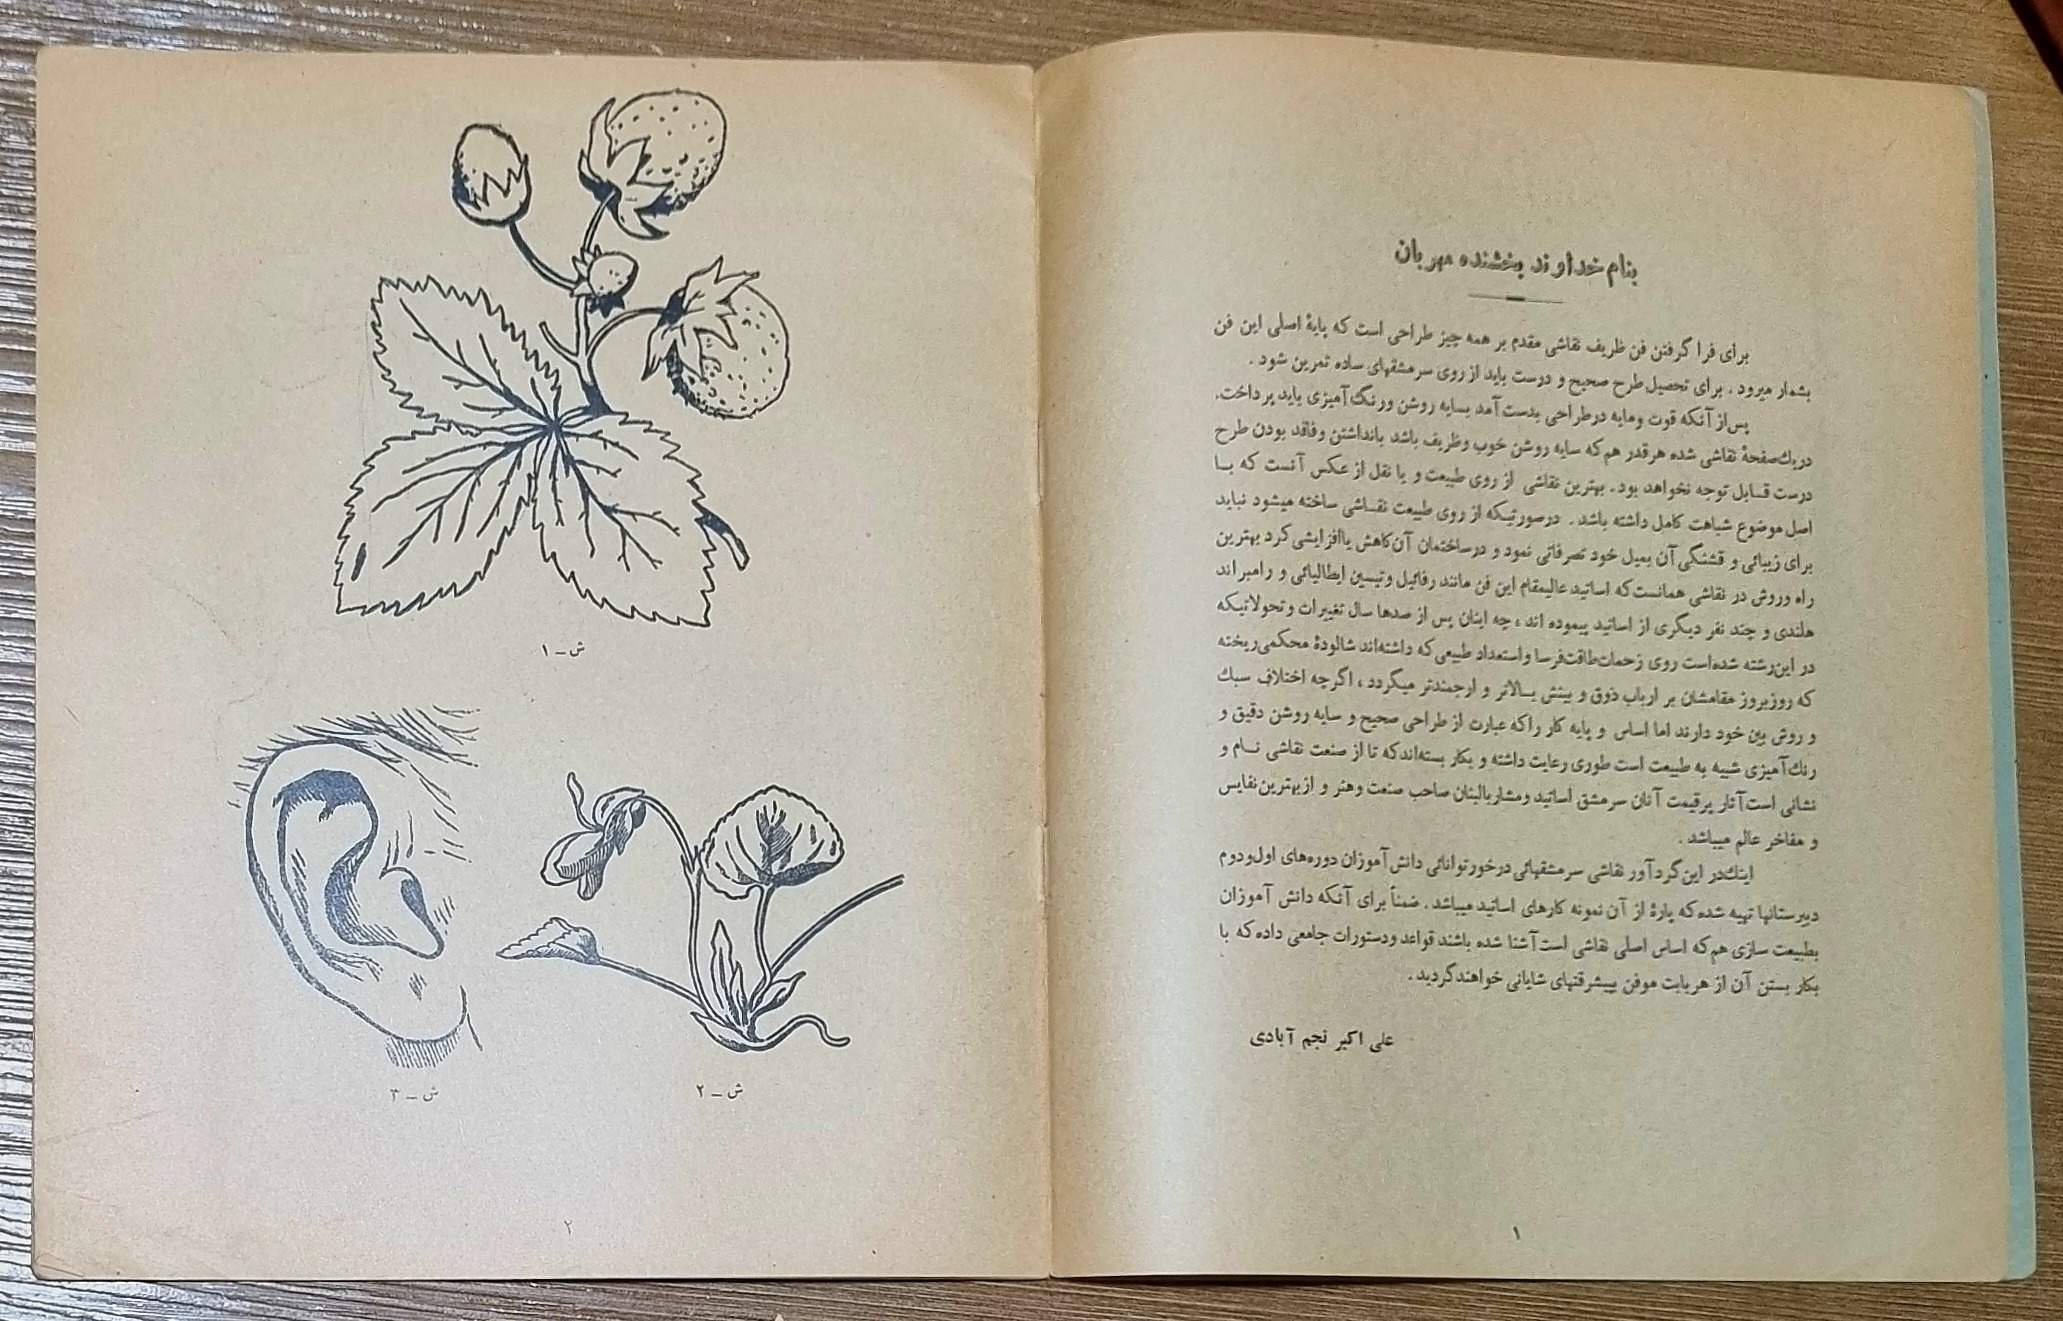 بنام خداوند بخشنده مهربان
برای فرا گرفتن فن ظریف نقاشی مقدم بر همه چیز طراحی است که پایهٔ اصلی این فن
بشمار میرود . برای تحصیل طرح صحیح و درست باید از روی سرمشقهای ساده تمرین شود .
پس از آنکه قوت و مایه در طراحی بدست آمد بسایه روشن و رنگ آمیزی باید پرداخت.
در یك صفحهٔ نقاشی شده هر قدر هم که سایه روشن خوب و ظریف باشد با نداشتن و فاقد بودن طرح
درست قابل توجه نخواهد بود . بهترین نقاشی از روی طبیعت و یا نقل از عکس آنست که با
اصل موضوع شباهت کامل داشته باشد . در صورتیکه از روی طبیعت نقاشی ساخته میشود نباید
برای زیبائی و قشنگی آن بمیل خود تصرفاتی نمود و در ساختمان آن کاهش یا افزایشی کرد بهترین
راه و روش در نقاشی همانست که اساتید عالیمقام این فن مانند رفائیل و تیسین ایطالیائی و رامبراند
هلندی و چند نفر دیگری از اساتید پیموده اند ، چه اینان پس از صدها سال تغییرات و تحولاتیکه
در این رشته شده است روی زحمات طاقت فرسا و استعداد طبیعی که داشته اند شالودهٔ محکمی ریخته
که روز بروز مقامشان بر ارباب ذوق و بینش بالاتر و ارجمندتر میگردد ، اگرچه اختلاف سبك
و روش بین خود دارند اما اساس و پایه کار را که عبارت از طراحی صحیح و سایه روشن دقیق و
رنك آمیزی شبیه به طبیعت است طوری رعایت داشته و بکار بسته اند که تا از صنعت نقاشی نام و
نشانی است آثار پر قیمت آنان سرمشق اساتید و مشار بالبنان صاحب صنعت و هنر و از بهترین نفایس
و مفاخر عالم میباشد .
اینك در این گرد آور نقاشی سرمشقهائی در خور توانائی دانش آموزان دوره های اول و دوم
دبیرستانها تهیه شده که پارهٔ از آن نمونه کارهای اساتید میباشد . ضمناً برای آنکه دانش آموزان
بطبیعت سازی هم که اساس اصلی نقاشی است آشنا شده باشند قواعد و دستورات جامعی داده که با
بکار بستن آن از هر بابت موفق بپیشرفتهای شایانی خواهند گردید .
علی اکبر نجم آبادی
۱
ش ـ ۱
ش ـ ۲
ش ـ ۳
۲